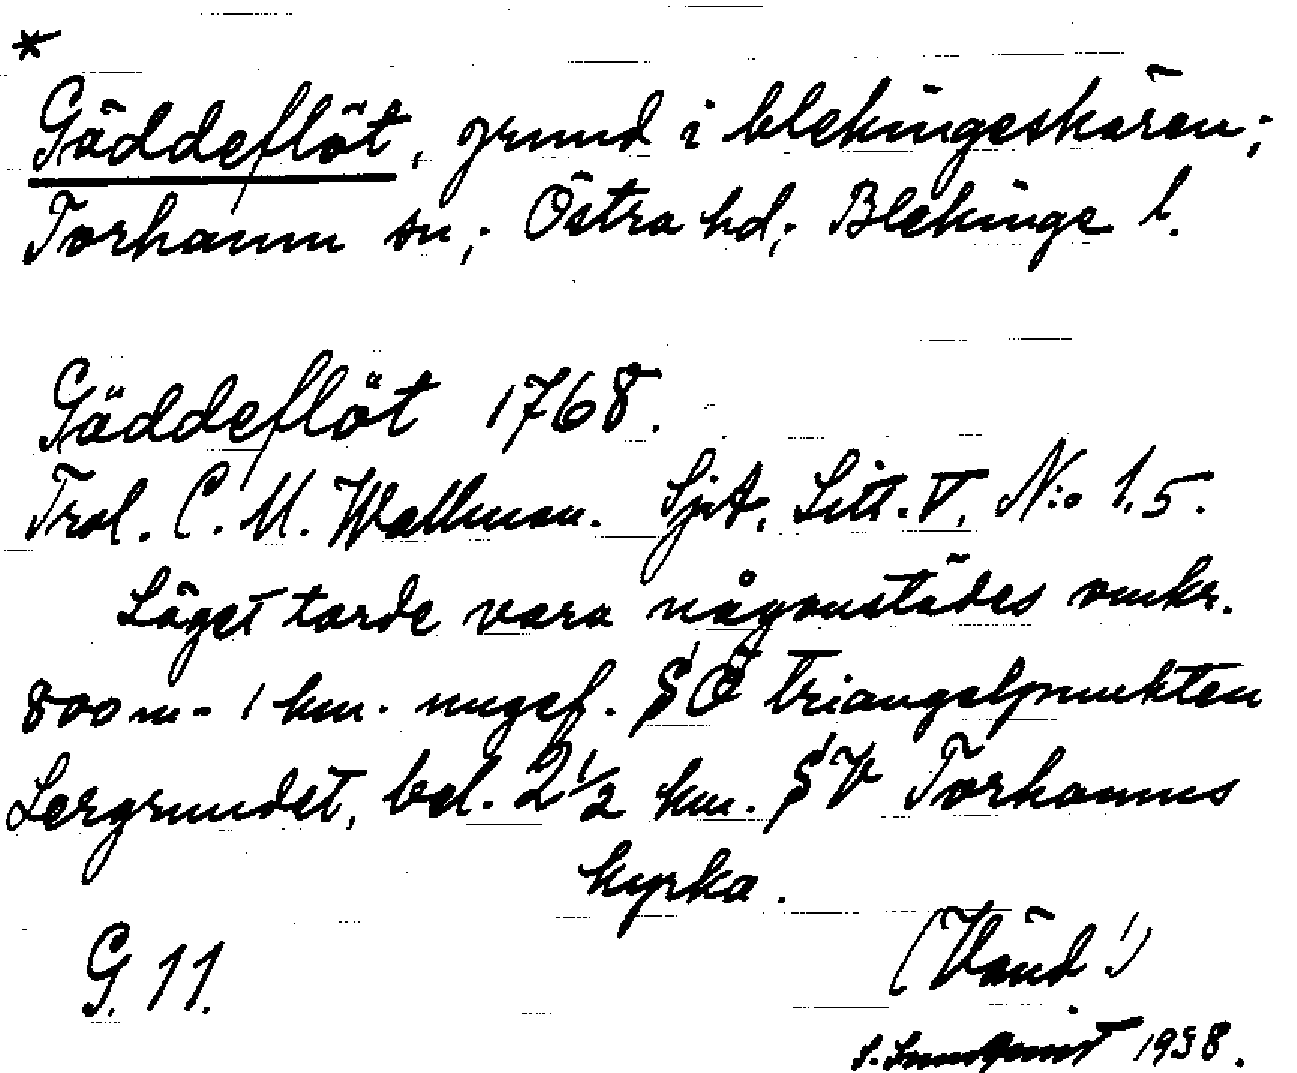 *
Gäddeflöt, grund i blekingeskären;
Torhamn sn; Östra hd; Blekinge l.
Gäddeflöt 1768.
Trol. C. M. Wallman. SjöA. Litt. V. N:o 15.
Läget torde vara någonstädes omkr.
800 m - 1 km. ungef. SÖ triangelpunkten
Lergrundet, bel. 2 1/2 km. SV Torhamns
kyrka.
G. 11.
(Vänd!)
S. Sundquist 1938.